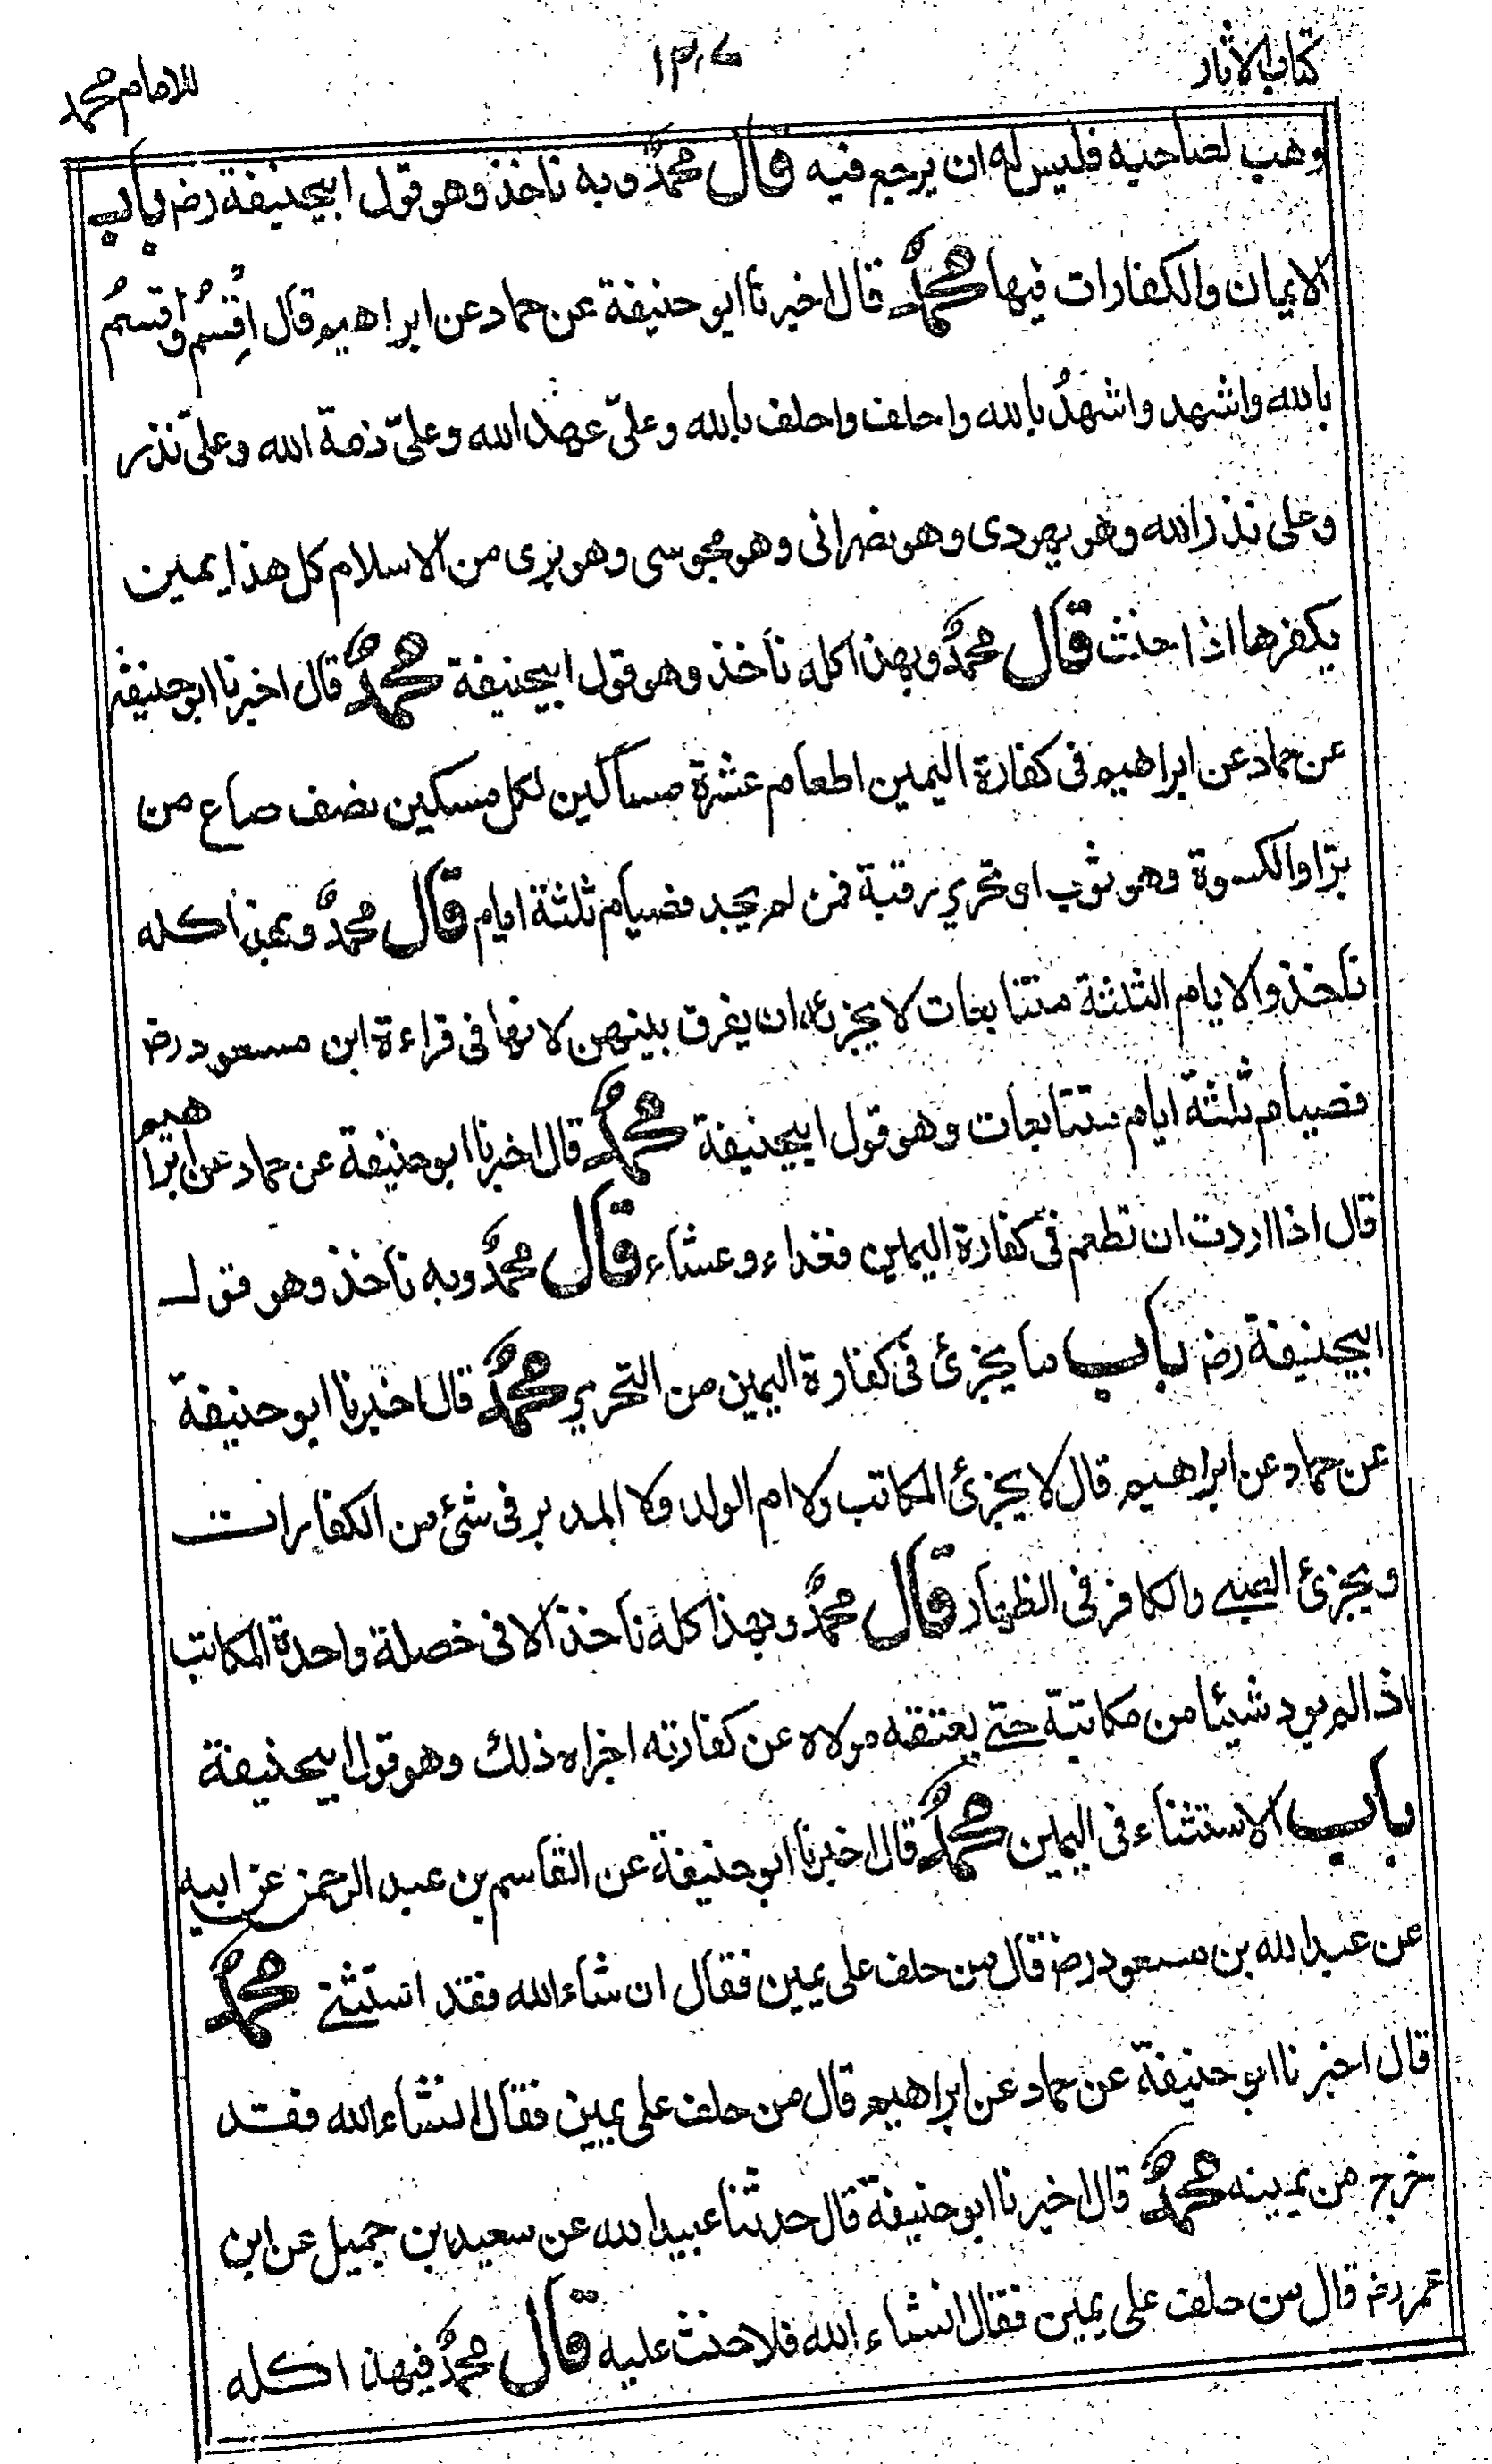 كتاب الاثار
١٣٠
للامام محمد
وهب لصاحبه فليس له ان يرجع فيه قال محمدٌ وبه ناخذ وهو قول ابيحنيفة رضـ باب
الايمان والكفارات فيها محمدٌ قال اخبرنا ابو حنيفة عن حماد عن ابراهيم قال اُقسِمُ واُقسمُ
بالله واشهد واشهدُ بالله واحلف واحلف بالله وعليّ عهد الله وعليّ ذمة الله وعليّ نذر
وعلى نذر الله وهو يهودى وهو نصرانى وهو مجوسى وهو برى من الاسلام كل هذا يمين
يكفرها اذا حنث قال محمدٌ وبهذا كله نأخذ وهو قول ابيحنيفة محمدٌ قال اخبرنا ابو حنيفة
عن حماد عن ابراهيم فى كفارة اليمين اطعام عشرة مساكين لكل مسكين نصف صاع من
برّ او الكسوة وهو ثوب او تحرير رقبة فمن لم يجد فصيام ثلثة ايام قال محمدٌ وبهذا كله
ناخذ والايام الثلثة متتابعات لا يجزئه ان يفرق بينهن لانها فى قراءة ابن مسعود رضـ
فصيام ثلثة ايام متتابعات وهو قول ابيحنيفة محمدٌ قال اخبرنا ابو حنيفة عن حماد عن ابراهيم
قال اذا اردت ان تطعم فى كفارة اليمين فغداء وعشاء قال محمدٌ وبه ناخذ وهو قول
ابيحنيفة رضـ باب ما يجزئ فى كفارة اليمين من التحرير محمدٌ قال اخبرنا ابو حنيفة
عن حماد عن ابراهيم قال لا يجزئ المكاتب ولا ام الولد ولا المدبر فى شئ من الكفارات
ويجزئ الصبے والكافر فى الظهار قال محمدٌ وبهذا كله ناخذ الا فى خصلة واحدة المكاتب
اذا لم يود شيئا من مكاتبة حتے يعتقه مولاه عن كفارته اجزاه ذلك وهو قول ابيحنيفة
باب الاستثناء فى اليمين محمدٌ قال اخبرنا ابو حنيفة عن القاسم بن عبد الرحمن عن ابيه
عن عبد الله بن مسعود رضـ قال من حلف على يمين فقال ان شاء الله فقد استثنے محمدٌ
قال اخبرنا ابو حنيفة عن حماد عن ابراهيم قال من حلف على يمين فقال انشاء الله فقد
خرج من يمينه محمدٌ قال اخبرنا ابو حنيفة قال حدثنا عبيد الله عن سعيد بن جميل عن ابن
عمر رضـ قال من حلف على يمين فقال انشاء الله فلا حنث عليه قال محمدٌ فبهذا كله